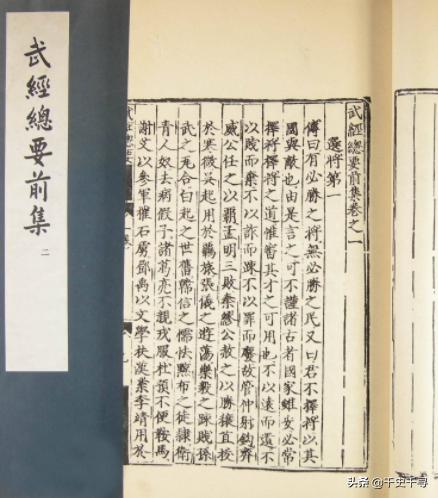 武經總要前集
二
武經總要前集卷之一
選將第一
傳曰有必勝之將無必勝之民又曰君不擇將以其
國與敵也由是言之可不謹諸古者國家雖安必常
擇將擇將之道惟審其才之可用也不以遠而遺不
以賤而棄不以詐而疎不以罪而廢故管仲射鉤齊
威公任之以霸孟明三敗秦繆公赦之以勝穰苴拔
於寒微吳起用於羈旅張儀之遊蕩樂毅之踈賤孫
武之瓦合白起之世舊韓信之懦怯黥布之徒隸衛
青人奴去病假子諸葛亮不親戎服杜預不便鞍馬
謝艾以參軍摧石虜鄧禹以文學扶漢業李靖用於
头条 @千史千寻